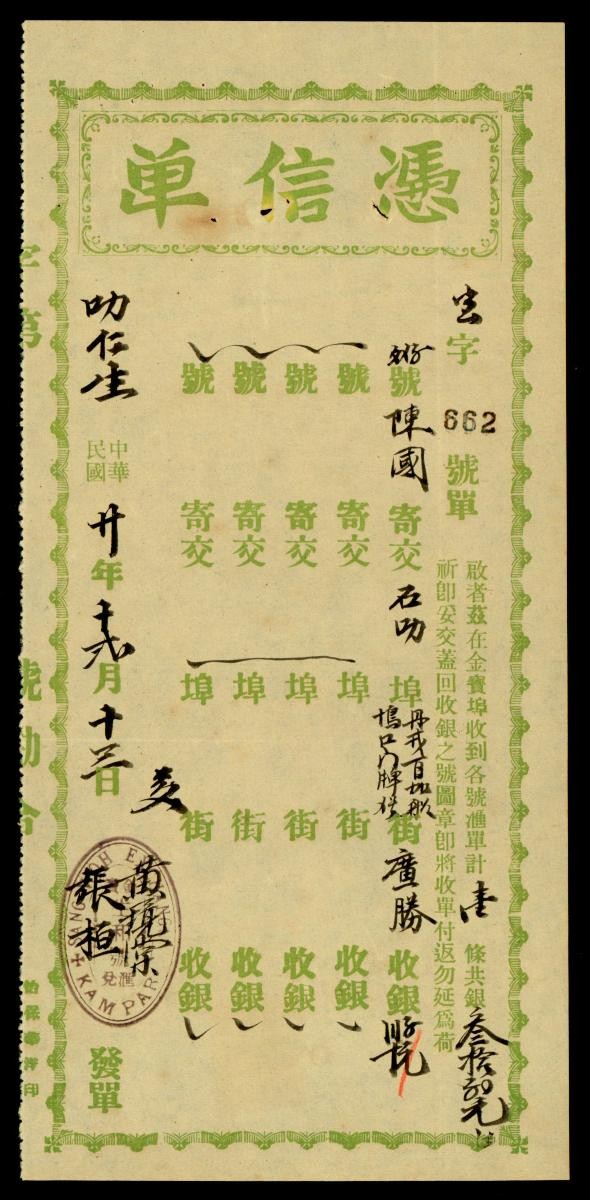 憑信単
字
662
號單
啟者茲在金寶埠收到各號滙單計壹條共銀叁拾
祈卽妥交蓋回收銀之號圖章卽將收單付返勿延爲荷
號陳國寄交石叻埠街廣勝收銀
號寄交埠街收銀
號寄交埠街收銀
號寄交埠街收銀
號寄交埠街收銀
叻仁生
中華
民國
廿年十弍月十三日
交
黃
張桓
滙
號
兌
KAMPAR
發單
字第
號勘合